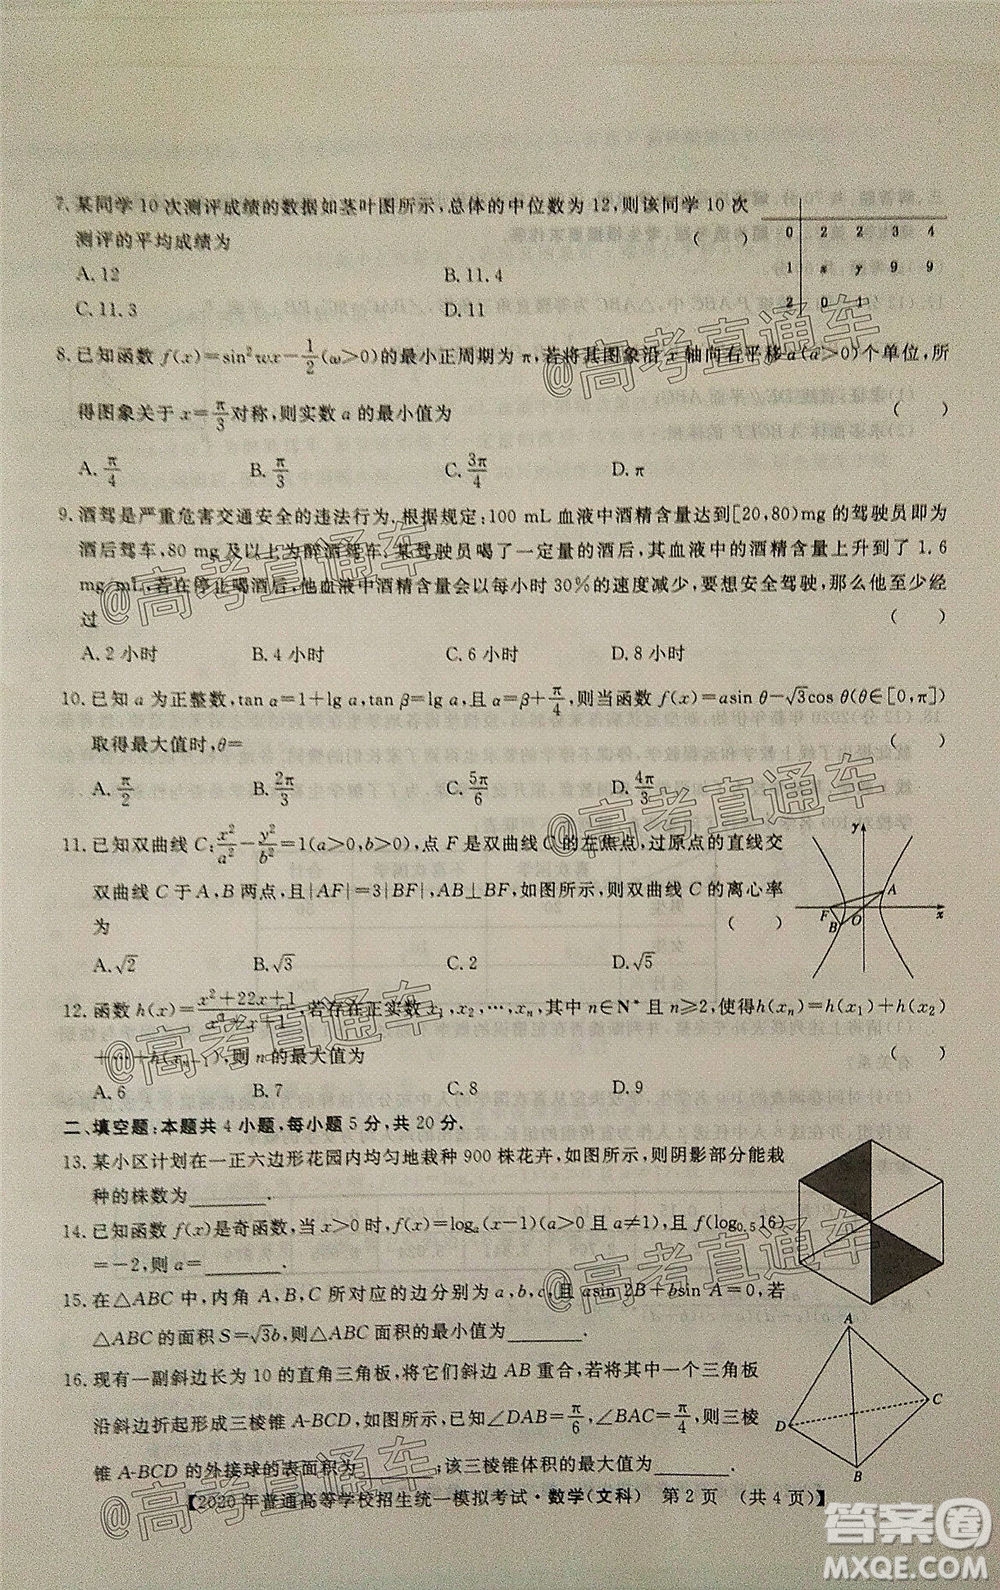 7. 某同学10次测评成绩的数据如茎叶图所示,总体的中位数为12,则该同学10次
测评的平均成绩为 ( )
0 2 2 3 4
1 x y 9 9
2 0 1
A. 12 B. 11.4
C. 11.3 D. 11
8. 已知函数 f(x)=sin²wx−1/2(ω>0)的最小正周期为 π,若将其图象沿 x 轴向右平移 a(a>0)个单位,所
得图象关于 x=π/3对称,则实数 a 的最小值为 ( )
A. π/4 B. π/3 C. 3π/4 D. π
9. 酒驾是严重危害交通安全的违法行为.根据规定:100 mL 血液中酒精含量达到[20,80)mg 的驾驶员即为
酒后驾车,80 mg 及以上为醉酒驾车.某驾驶员喝了一定量的酒后,其血液中的酒精含量上升到了1.6
mg/mL,若在停止喝酒后,他血液中酒精含量会以每小时30%的速度减少,要想安全驾驶,那么他至少经
过 ( )
A. 2 小时 B. 4 小时 C. 6 小时 D. 8 小时
10. 已知 a 为正整数,tan α=1+lg a,tan β=lg a,且 α=β+π/4,则当函数 f(x)=asin θ−√3cos θ(θ∈[0,π])
取得最大值时,θ= ( )
A. π/2 B. 2π/3 C. 5π/6 D. 4π/3
11. 已知双曲线 C:x²/a²−y²/b²=1(a>0,b>0),点 F 是双曲线 C 的左焦点,过原点的直线交
双曲线 C 于 A,B 两点,且|AF|=3|BF|,AF⊥BF,如图所示,则双曲线 C 的离心率
为 ( )
y
A
F
B
O
x
A. √2 B. √3 C. 2 D. √5
12. 函数 h(x)=x²+22x+1/x²+x+1,若存在正实数 x₁,x₂,⋯,xₙ,其中 n∈N* 且 n≥2,使得h(xₙ)=h(x₁)+h(x₂)
+⋯+h(xₙ₋₁),则 n 的最大值为 ( )
A. 6 B. 7 C. 8 D. 9
二、填空题:本题共 4 小题,每小题 5 分,共 20 分.
13. 某小区计划在一正六边形花园内均匀地栽种 900 株花卉,如图所示,则阴影部分能栽
种的株数为________.
14. 已知函数 f(x)是奇函数,当 x>0 时,f(x)=logₐ(x−1)(a>0 且 a≠1),且 f(log₀.₅16)
=−2,则 a=________.
15. 在△ABC 中,内角 A,B,C 所对应的边分别为 a,b,c,且 asin 2B+bsin A=0,若
△ABC 的面积 S=√3b,则△ABC 面积的最小值为________.
16. 现有一副斜边长为 10 的直角三角板,将它们斜边 AB 重合,若将其中一个三角板
沿斜边折起形成三棱锥 A-BCD,如图所示,已知∠DAB=π/6,∠BAC=π/4,则三棱
锥 A-BCD 的外接球的表面积为________;该三棱锥体积的最大值为________.
A
C
D
B
【2020 年普通高等学校招生统一模拟考试·数学(文科) 第 2 页 (共 4 页)】
@高考直通车
@高考直通车
@高考直通车
@高考直通车
@高考直通车
@高考直通车
答案圈
MXQE.COM